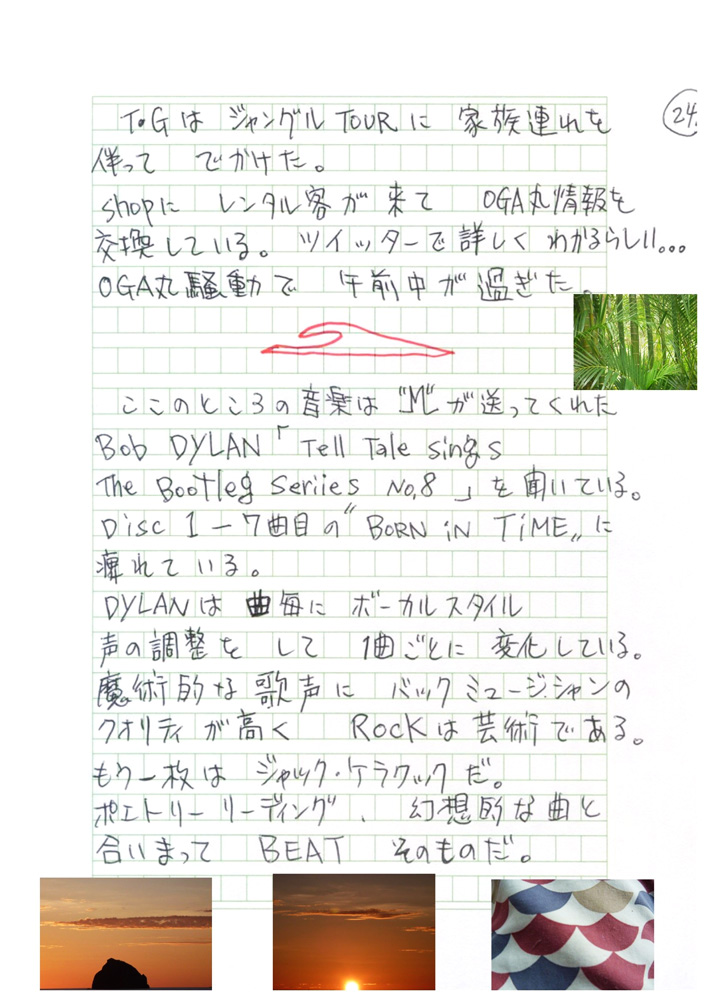 24.
T.Gは ジャングル TOURに 家族連れを
伴って でかけた。
shopに レンタル客が 来て OGA丸情報を
交換している。 ツイッターで詳しく わかるらしい...
OGA丸騒動で 午前中が 過ぎた。
ここのところの音楽は "M"が送ってくれた
Bob DYLAN「Tell Tale sings
The Bootleg Seriies No.8 」を聞いている。
Disc 1 ー7曲目の"BORN iN TiME"に
痺れて いる。
DYLANは 曲毎に ボーカルスタイル
声の調整を して 1曲ごとに 変化している。
魔術的な歌声に バックミュージシャンの
クオリティが高く ROCKは芸術である。
もう一枚は ジャック・ケラワックだ。
ポエトリーリーディング、 幻想的な曲と
合いまって BEAT そのものだ。